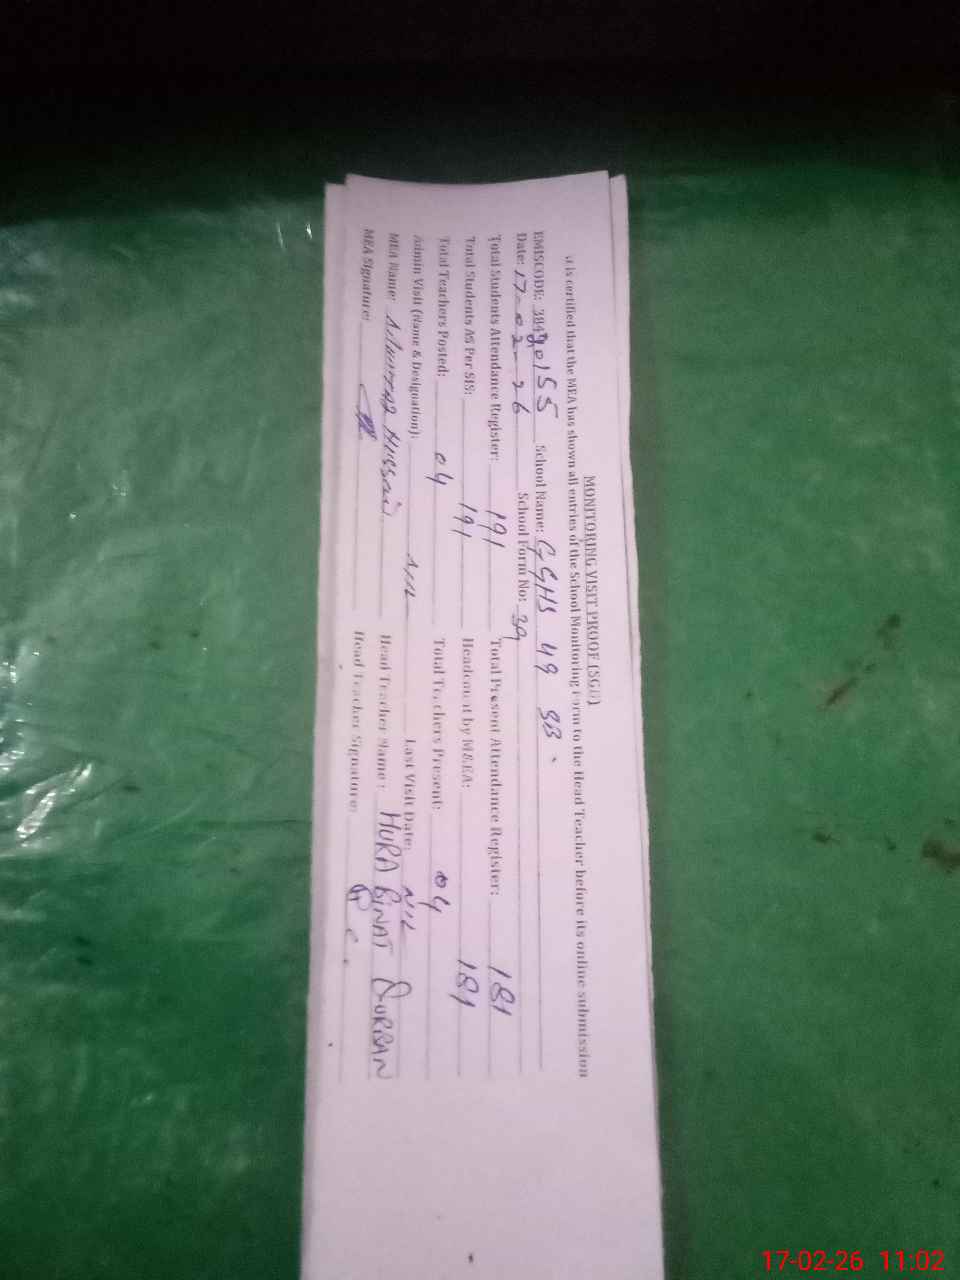 MONITORING VISIT PROOF (SGD)
It is certified that the MEA has shown all entries of the School Monitoring Form to the Head Teacher before its online submission
EMISCODE: 38420155 School Name: GGHS 49 SB.
Date: 17-02-26 School Form No: 39
Total Students Attendance Register: 191 Total Present Attendance Register: 181
Total Students AS Per SIS: 191 Headcount by M&EA: 181
Total Teachers Posted: 04 Total Teachers Present: 04
Admin Visit (Name & Designation): NIL Last Visit Date: NIL
MEA Name: Hussain Head Teacher Name: HURA BINAT QURBAN
MEA Signature: Head Teacher Signature:
17-02-26 11:02